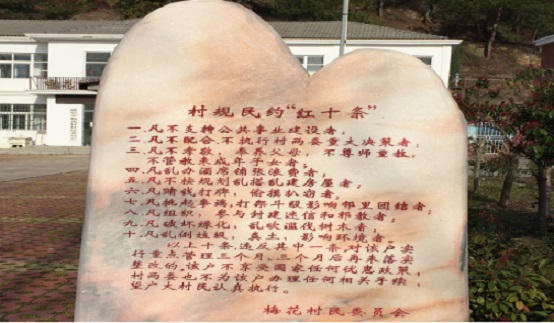 村规民约“红十条”
一、凡不支持公共事业建设者；
二、凡不配合、不执行村两委重大决策者；
三、凡不孝敬、奉养父母，不尊师重教，
不管教未成年子女者；
四、凡乱办酒席铺张浪费者；
五、凡不按规划乱搭乱建房屋者；
六、凡赌钱打牌、偷摸扒窃者；
七、凡挑起事端，打架斗殴影响邻里团结者；
八、凡组织、参与封建迷信和邪教者；
九、凡破坏绿化，乱砍滥伐树木者；
十、凡乱倒垃圾、真土，影响环境者。
以上十条，违反其中一条，对该户实
行重点管理三个月，三个月后再未落实
整改的，该户不享受国家任何优惠政策，
村两委也不为该户办理任何相关手续，
望广大村民认真执行。
梅花村民委员会